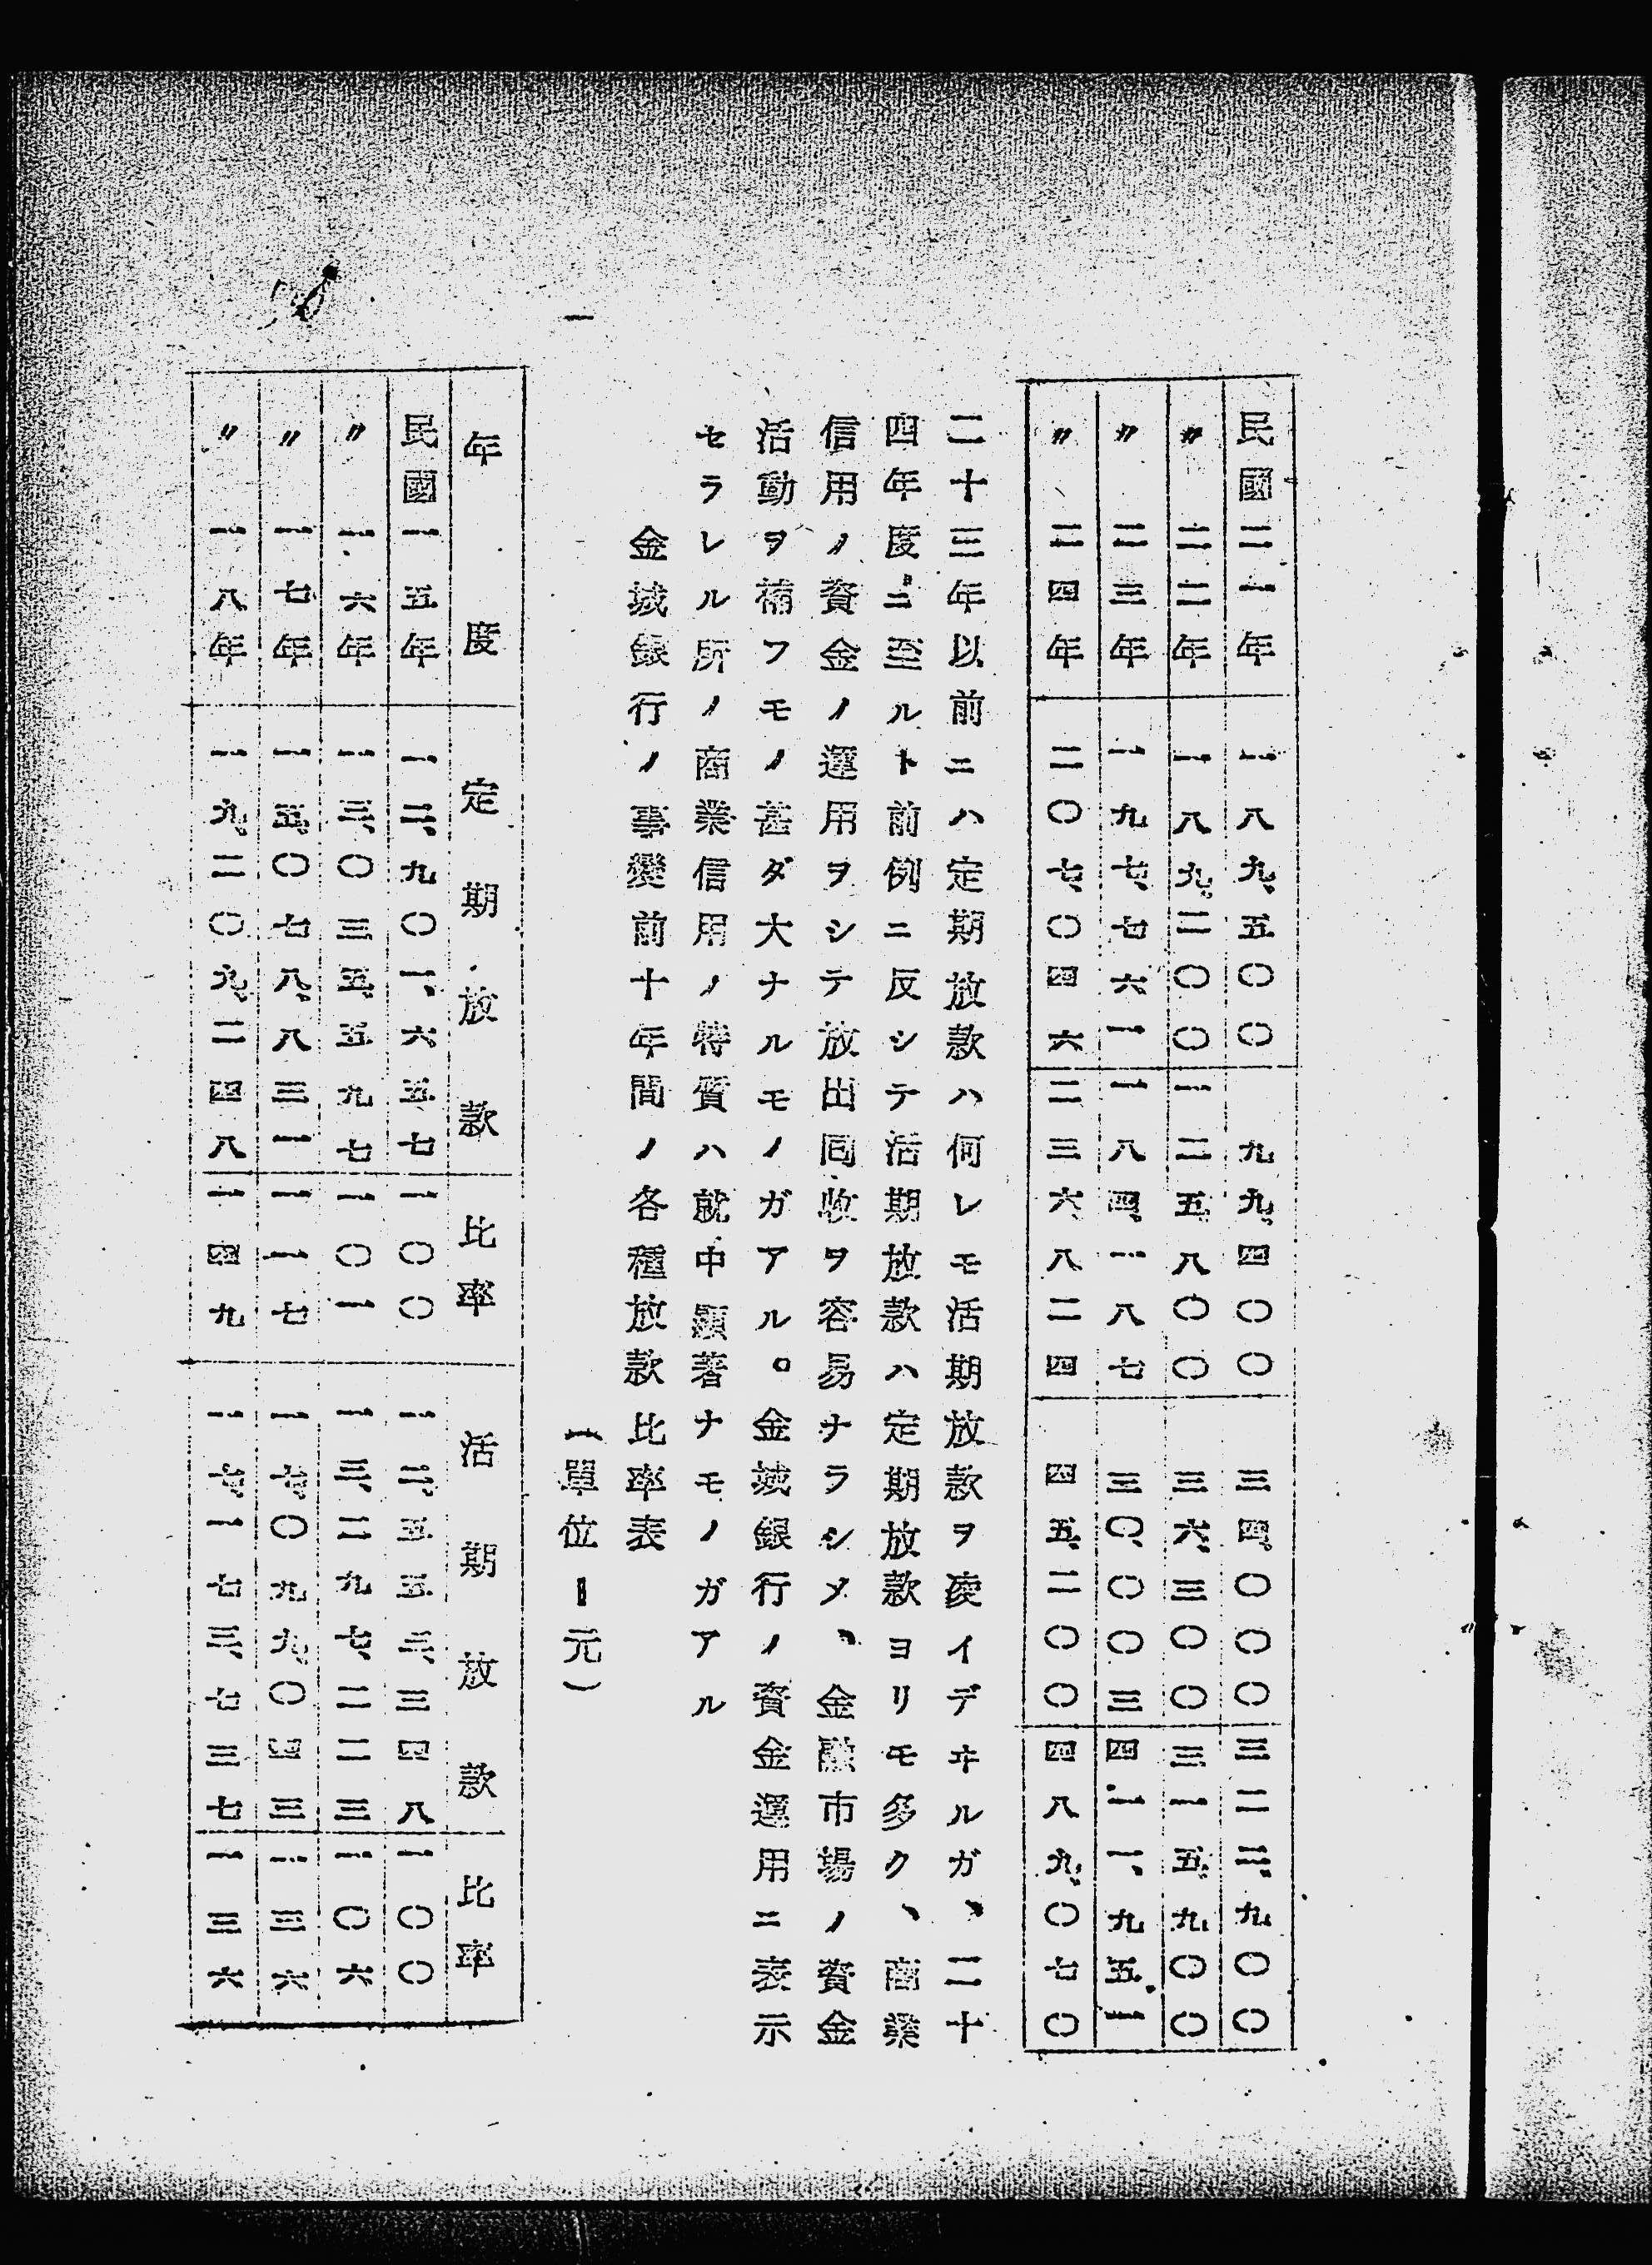 民國二一年 一八九、五〇〇 九九、四〇〇 三四、〇〇〇 三二二、九〇〇
〃二二年 一八九、二〇〇 一二五、八〇〇 三六、三〇〇 三一五、九〇〇
〃二三年 一九七、七六一 一八四、一八七 三〇、〇〇三 四一一、九五一
〃二四年 二〇七、〇四六 二三六、八二四 四五、二〇〇 四八九、〇七〇
二十三年以前ニハ定期放款ハ何レモ活期放款ヲ凌イデヰルガ、二十
四年度ニ至ルト前例ニ反シテ活期放款ハ定期放款ヨリモ多ク、商業
信用ノ資金ノ運用ヲシテ放出囘收ヲ容易ナラシメ、金融市場ノ資金
活動ヲ補フモノ甚ダ大ナルモノガアル。金城銀行ノ資金運用ニ表示
セラレル所ノ商業信用ノ特質ハ就中顯著ナモノガアル
金城銀行ノ事變前十年間ノ各種放款比率表
(單位ー元)
年度 定期放款 比率 活期放款 比率
民國一五年 一二、九〇一、六五七 一〇〇 一二、五五二、三四八 一〇〇
〃一六年 一三、〇三五、五九七 一〇一 一三、二九七、二二三 一〇六
〃一七年 一五、〇七八、八三一 一一七 一七、〇九九、〇四三 一三六
〃一八年 一九、二〇九、二四八 一四九 一七、一七三、七三七 一三六